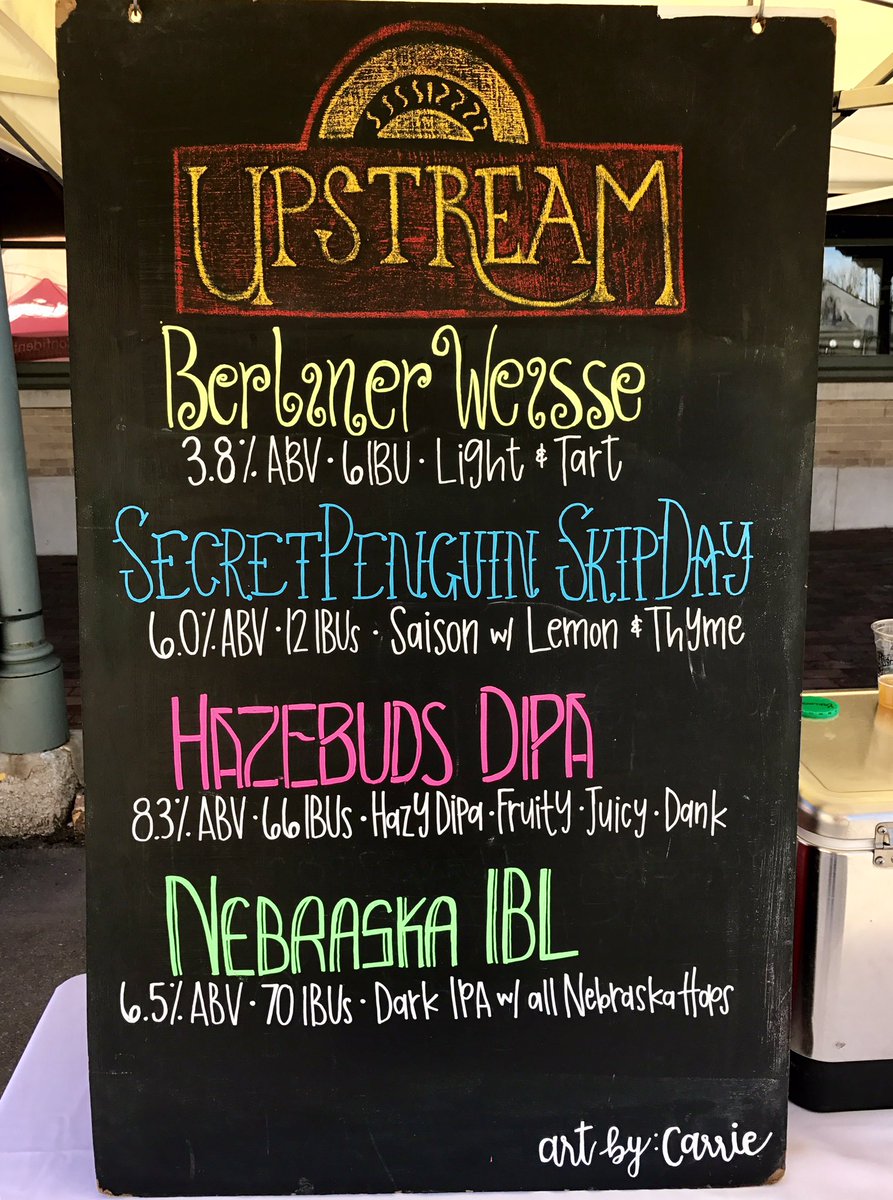 UPSTREAM
Berliner Weisse
3.8% ABV · 6 IBU · Light & Tart
SECRETPENGUIN SKIPDAY
6.0% ABV · 12 IBUs · Saison w/ Lemon & Thyme
HAZEBUDS DIPA
8.3% ABV · 66 IBUs · Hazy Dipa · Fruity · Juicy · Dank
NEBRASKA IBL
6.5% ABV · 70 IBUs · Dark IPA w/ all Nebraska Hops
art by: Carrie